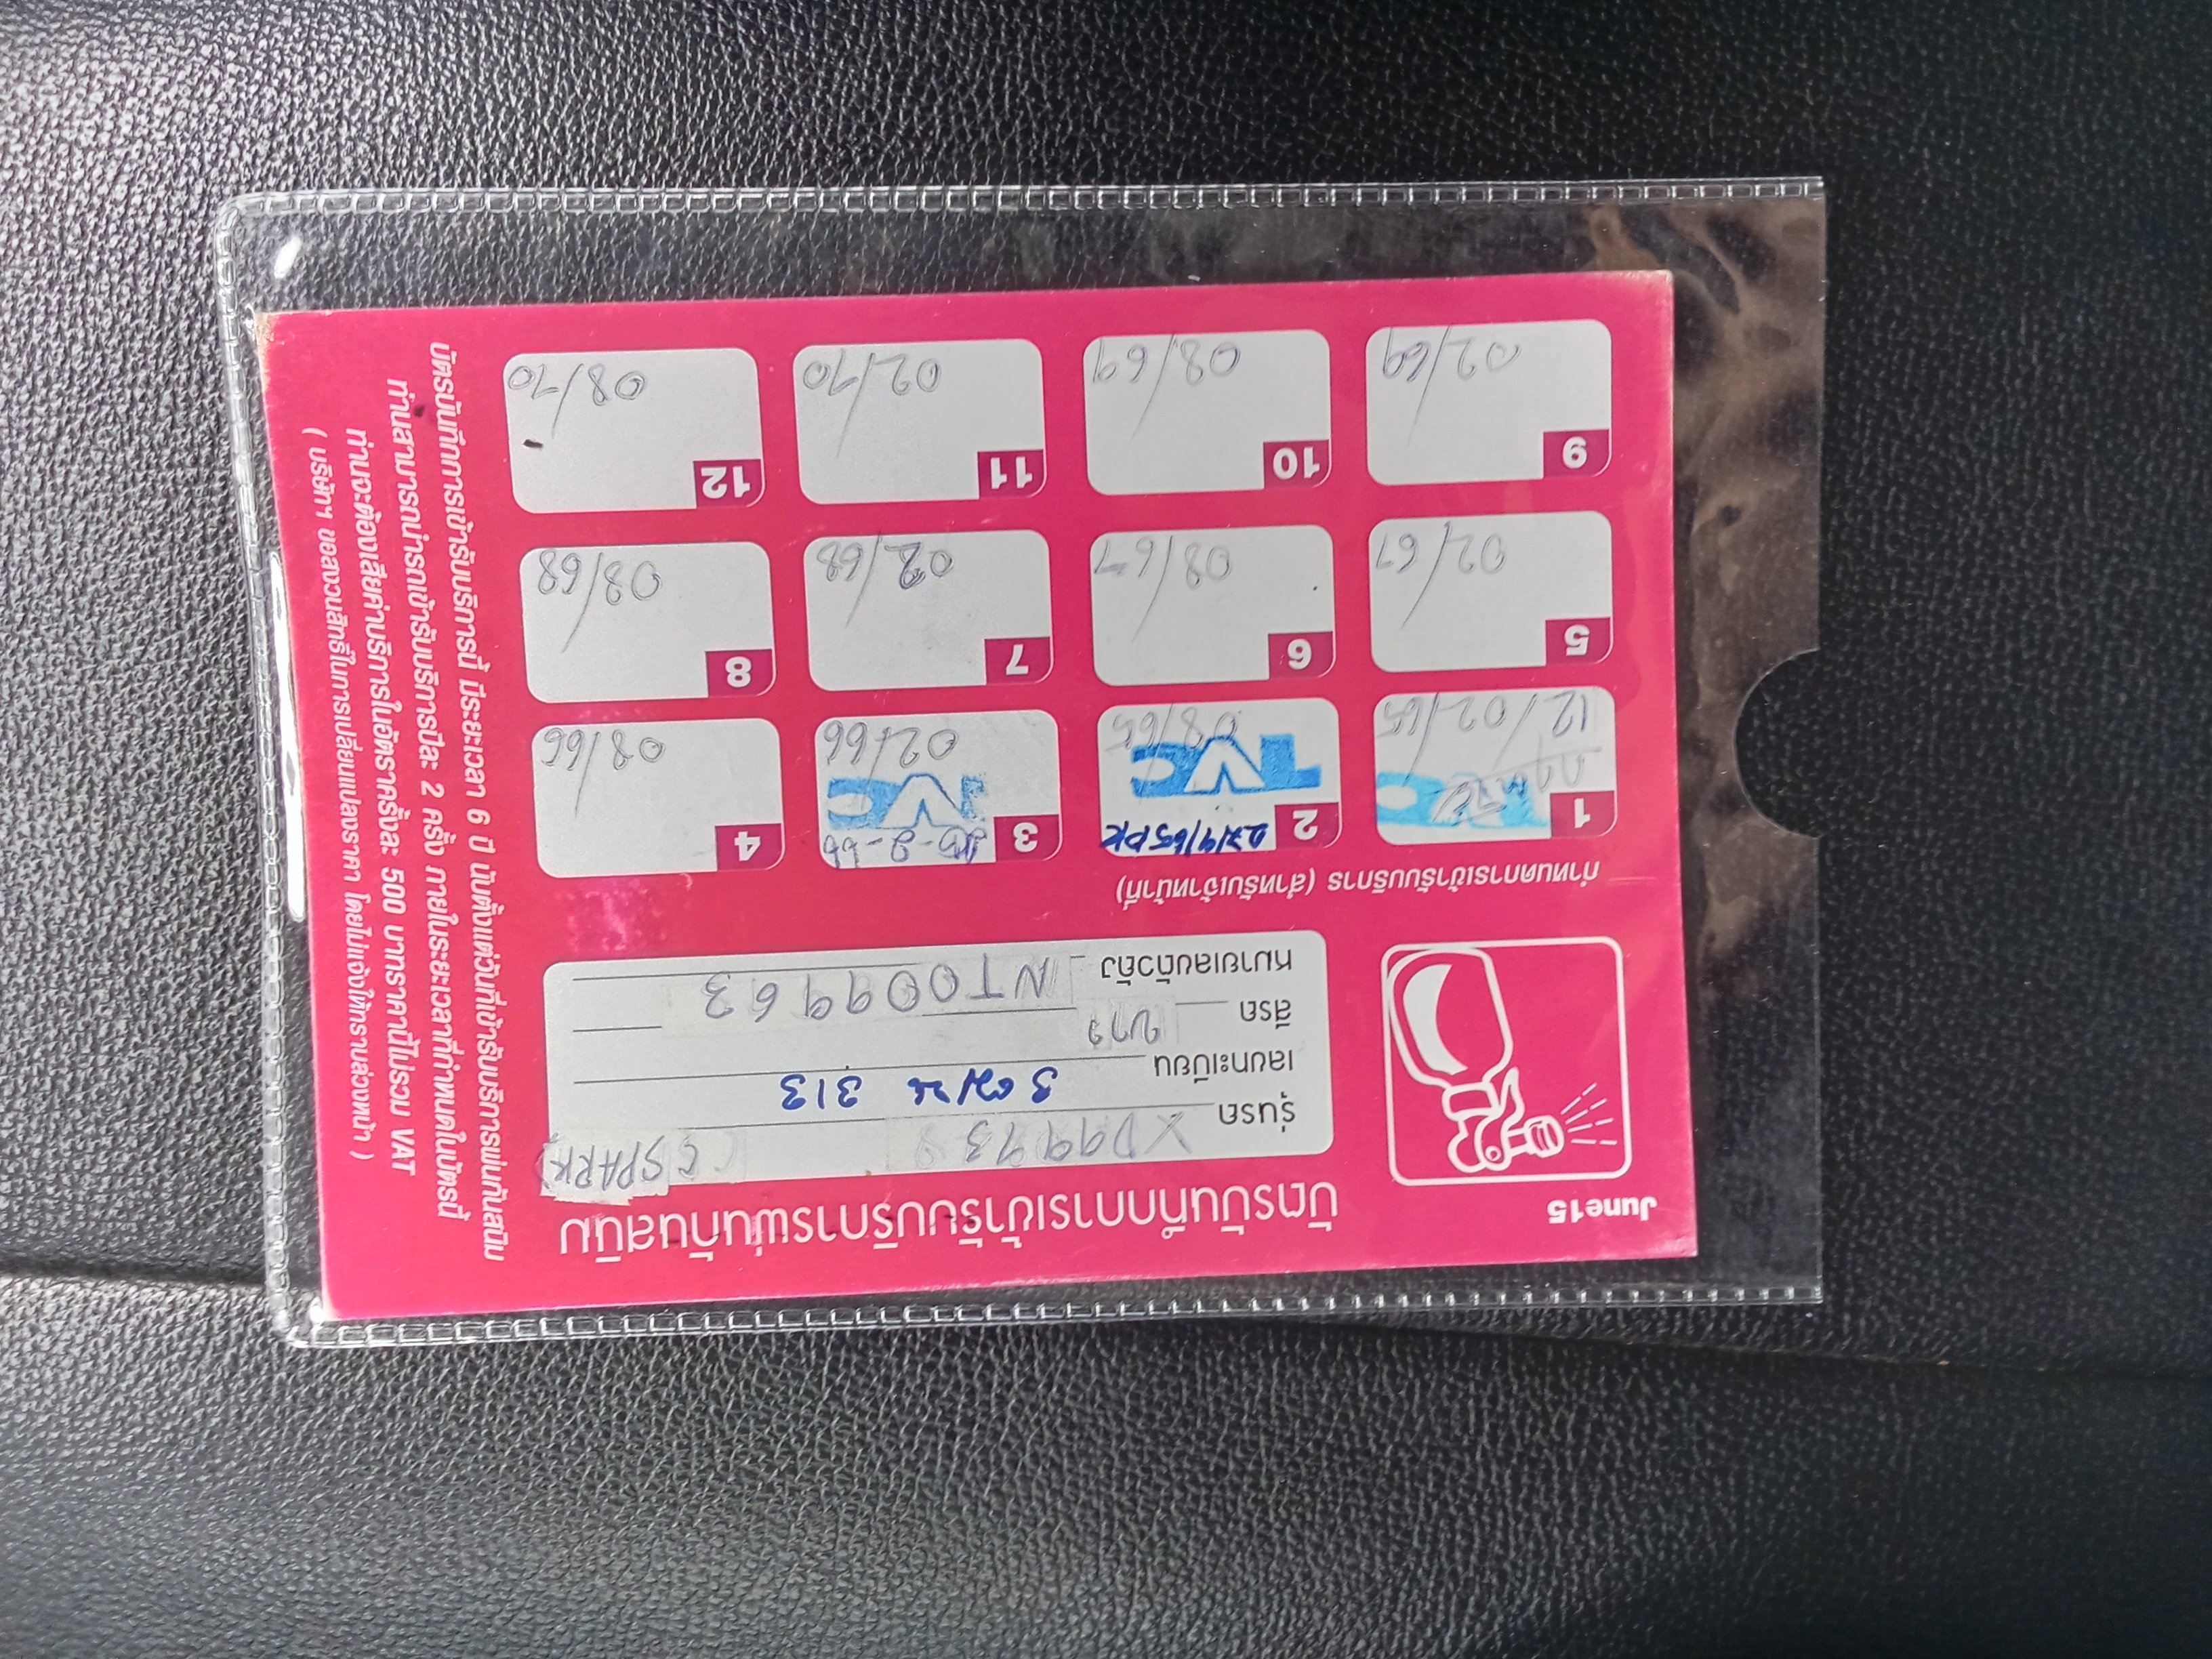 June15
บัตรบันทึกการเข้ารับบริการพ่นกันสนิม
รุ่นรถ XD9973 (SPARK)
เลขทะเบียน 313
สีรถ ขาว
หมายเลขตัวถัง NT009963
กำหนดการเข้ารับบริการ (สำหรับเจ้าหน้าที่)
1 12/02/65
2 27/9/65PK TVC 08/65
3 TVC 02/66
4 08/66
5 02/67
6 08/67
7 02/68
8 08/68
9 02/69
10 08/69
11 02/70
12 08/70
บัตรบันทึกการเข้ารับบริการนี้ มีระยะเวลา 6 ปี นับตั้งแต่วันที่เข้ารับบริการพ่นกันสนิม
ท่านสามารถนำรถเข้ารับบริการปีละ 2 ครั้ง ภายในระยะเวลาที่กำหนดในบัตรนี้
ท่านจะต้องเสียค่าบริการในอัตราครั้งละ 500 บาทราคานี้ไม่รวม VAT
( บริษัทฯ ขอสงวนสิทธิ์ในการเปลี่ยนแปลงราคา โดยไม่แจ้งให้ทราบล่วงหน้า )